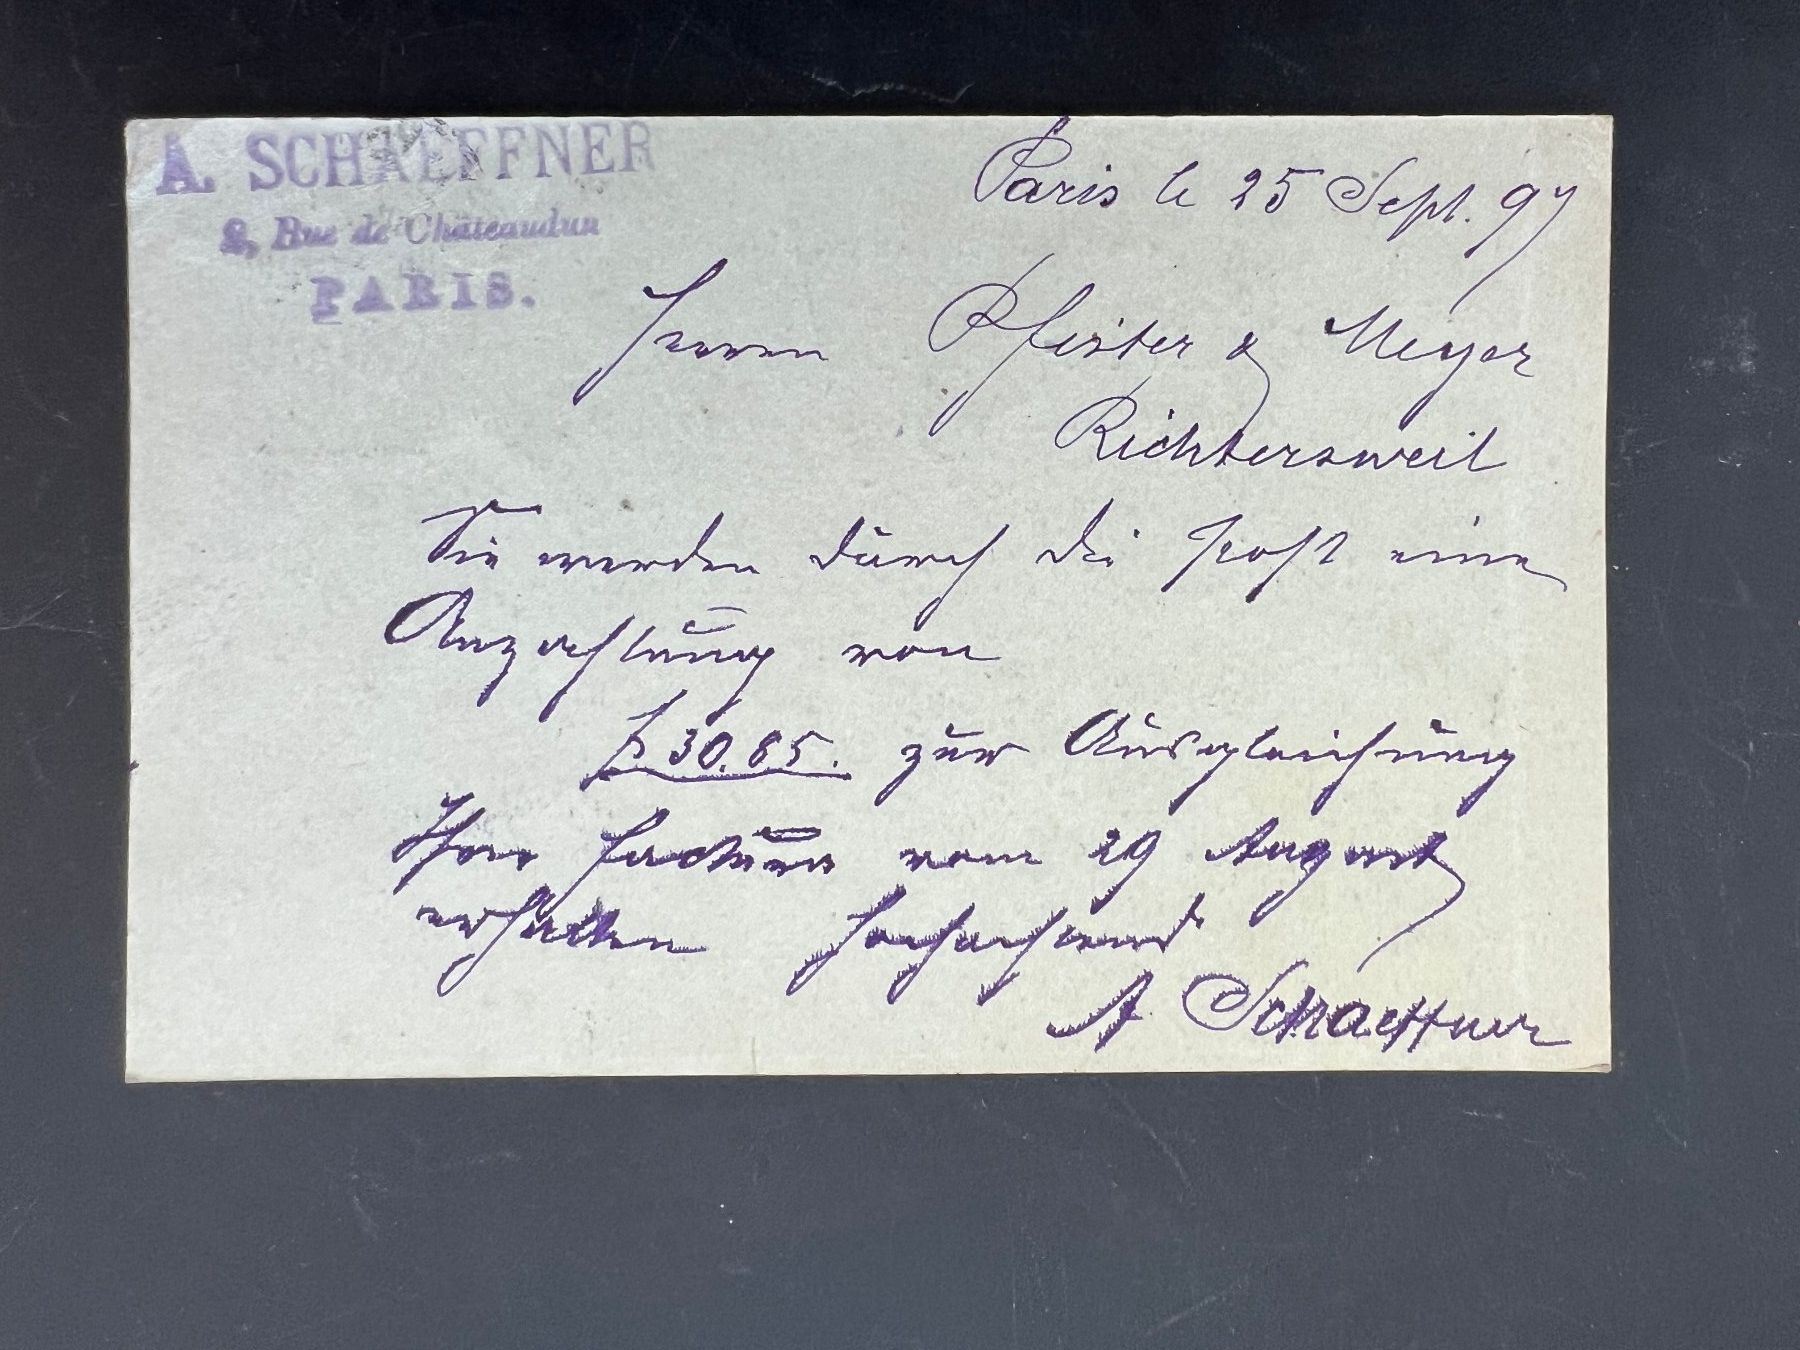 A. SCHAEFFNER
2, Rue de Châteaudun
PARIS.
Paris le 25 Sept. 97
Herren Pfister & Meyer
Richtersweil
Sie werden durch die Post eine
Anzahlung von
30.85. zur Ausgleichung
Ihrer Factura vom 29 August
erhalten Hochachtend
A Schaeffner